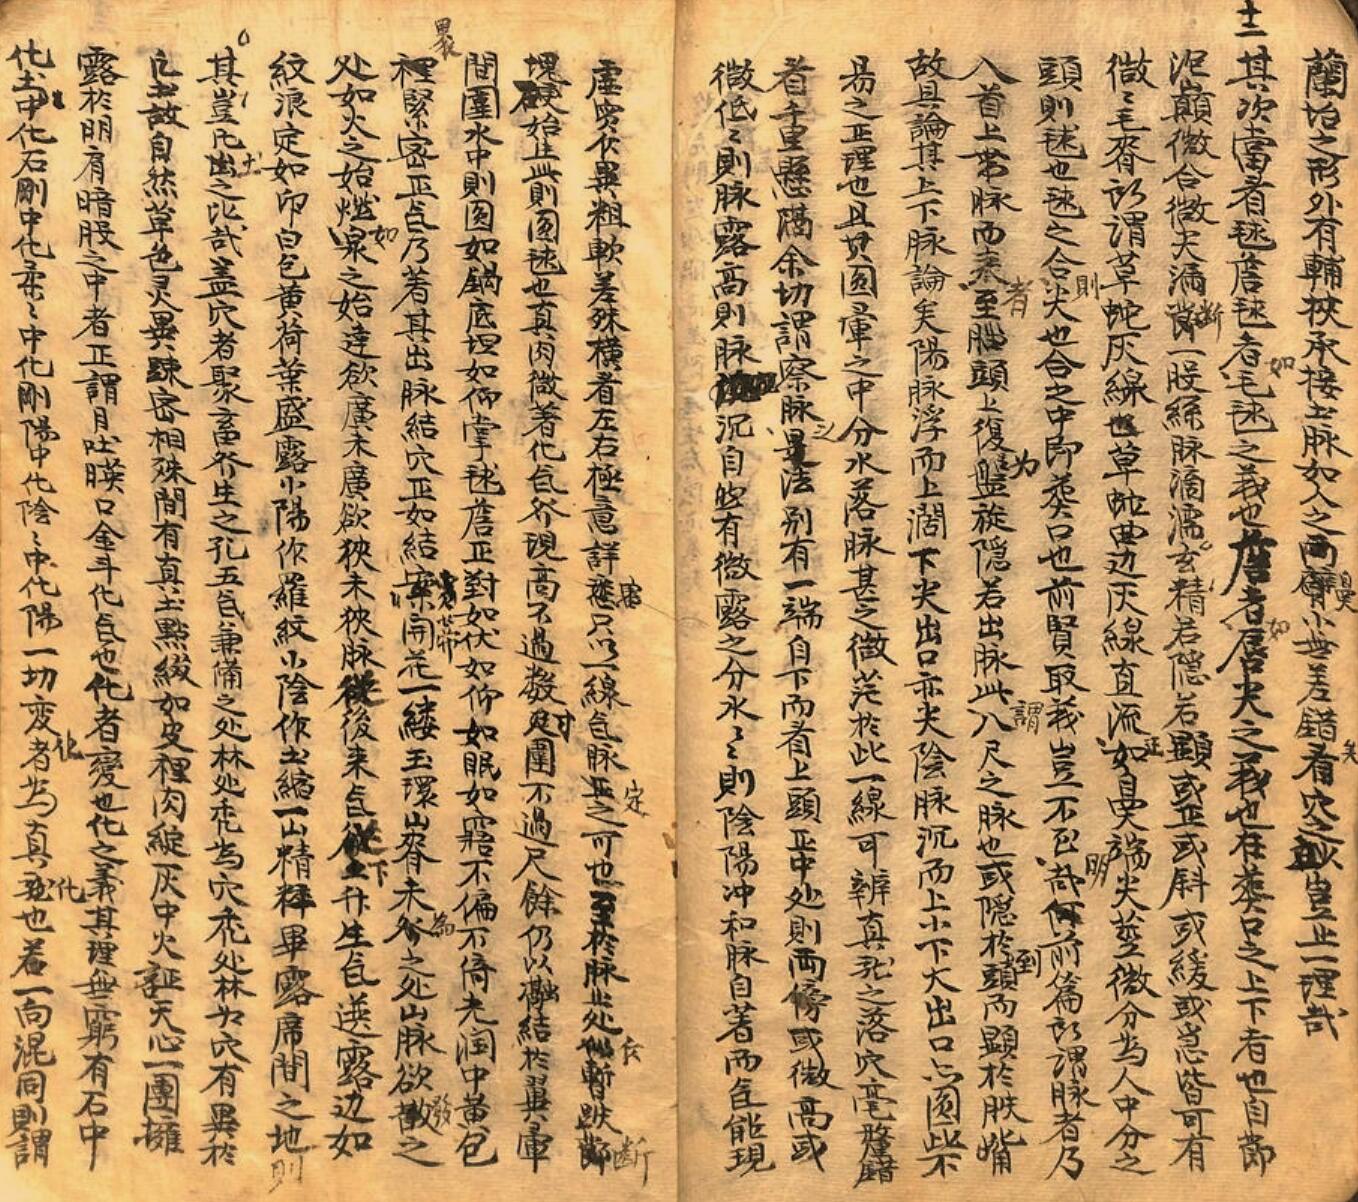 十二
蘭治之形外有輔挾承接土脈如人之両臂小無差錯看穴之妙豈止一理哉
其次當看毬簷毬者如毛毬之義也簷者如唇尖之義也在葬口之上下者也自節
泥巔微合微尖滴断一股絲脈滴濡玄精若隱若顯或正或斜或緩或急皆可有
微〻毛脊所謂草蛇灰線也草蛇曲辺灰線直流正如鼻端尖莖微分為人中分之
頭則毬也毬之合尖則也合之中即葬口也前賢取義豈不明哉何前篇所謂脉者乃
入首上帯脉而来者至腦頭上復為盤旋隱若出脉此謂入尺之脉也或隱於到頭而顯於肤嘴
故具論其上下脉論矣陽脉浮而上濶下尖出口亦尖陰脉沉而上小下大出口亦圓此不
易之正理也且其圓暈之中分水落脉甚之微茫於此一線可辨真死之落穴毫釐錯
看千里懸隔余切謂察脉之法别有一端自下而看上頭正中処則両傍或微高或
微低〻則脉露高則脉沉自然有微露之分水〻則陰陽冲和脉自著而気能現
虚実伏異粗軟差殊横看左右極意詳密只以一線気脉定之可也至於脉此処似暫跌断節
塊硬始生此則圓毬也真肉微著化気於現高不過数寸圍不過尺餘仍以融結於異暈
間團水中則圆如鍋底坦如仰掌毬簷正對如伏如仰如眠如寤不偏不倚光潤中黄包
裡緊密正気乃著其出脉結穴正如結菓開花一縷玉環山脊未分為之処山脉欲發散之
処如火之始燃如泉之始達欲廣未廣欲狭未狭脉從後来気從下升生気遂露辺如
紋浪定如印白包黄荷葉盛露小陽作羅紋小陰作土縮一山精粹畢露席間之地則
其豈凡土出之比哉盖穴者聚畜於生之孔五気兼備之処林処禿為穴禿処林為穴有異於
凡土故自然草色灵異踈密相殊間有真土點綴如皮裡肉綻灰中火証天心一團擁
露於明肩暗股之中者正謂月吐瞙口金斗化気也化者變也化之義其理無窮有石中
化土土中化石剛中化柔〻中化剛陽中化陰〻中化陽一切変化者為真化也若一向混同則謂